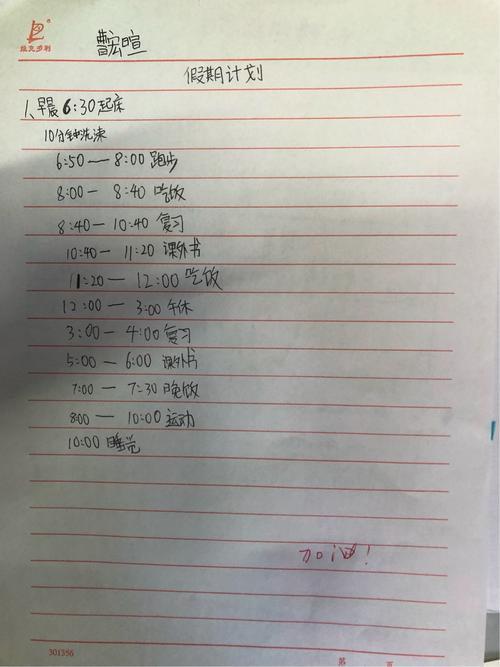 维克多利
曹宏暄
假期计划
1、早晨6:30起床
10分钟洗漱
6:50—8:00 跑步
8:00— 8:40 吃饭
8:40—10:40 复习
10:40—11:20 课外书
11:20—12:00吃饭
12:00—3:00 午休
3:00—4:00复习
5:00—6:00 课外书
7:00—7:30晚饭
8:00—10:00运动
10:00 睡觉
加油!
301356
第 页